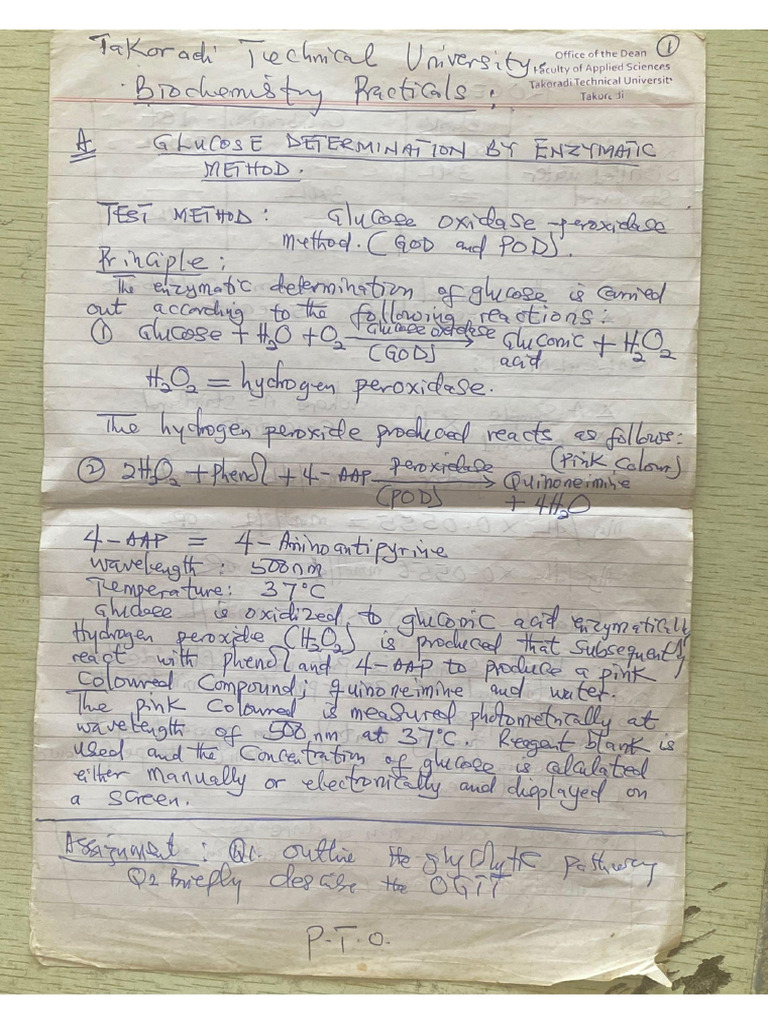 Takoradi Technical University.
Office of the Dean
Faculty of Applied Sciences
Takoradi Technical Universit
Takoradi
①
Biochemistry Practicals:
A GLUCOSE DETERMINATION BY ENZYMATIC
METHOD.
TEST METHOD: Glucose oxidase-peroxidase
method. (GOD and POD).
Principle:
The enzymatic determination of glucose is carried
out according to the following reactions:
① Glucose + H2O + O2 Glucose oxidase (GOD) → Gluconic acid + H2O2
H2O2 = hydrogen peroxidase.
The hydrogen peroxide produced reacts as follows:
② 2H2O2 + phenol + 4-AAP peroxidase (POD) → Quinoneimine (Pink Colour)
+ 4H2O
4-AAP = 4-Aminoantipyrine
wavelength: 500nm
Temperature: 37°C
Glucose is oxidized to gluconic acid enzymatically
Hydrogen peroxide (H2O2) is produced that subsequently
react with phenol and 4-AAP to produce a pink
coloured compound; quinoneimine and water.
The pink coloured is measured photometrically at
wavelength of 500nm at 37°C. Reagent blank is
used and the concentration of glucose is calculated
either manually or electronically and displayed on
a screen.
Assignment: Q1. outline the glycolytic pathway
Q2 Briefly describe the OGTT
P.T.O.